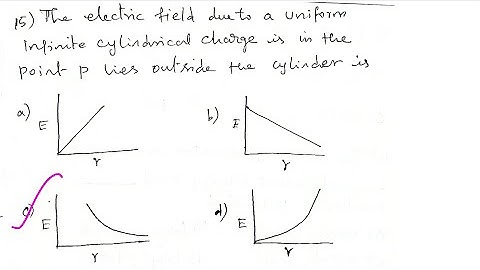 15) The electric field due to a uniform
Infinite cylindrical charge is in the
point p lies outside the cylinder is
a) E r
b) E r
c) E r
d) E r